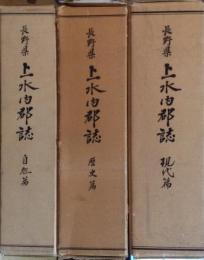 長野県
上水内郡誌
自然篇
長野県
上水内郡誌
歴史篇
長野県
上水内郡誌
現代篇